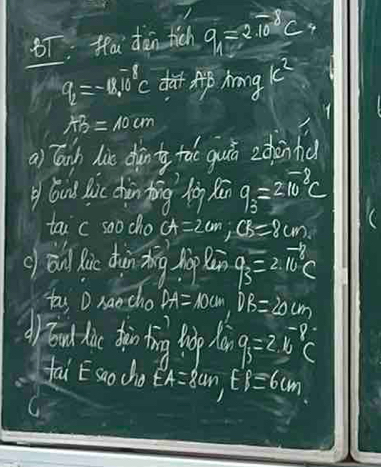 BT: Hai điện tích q₁ = 2.10⁻⁸ C,
q₂ = -18.10⁻⁸ C đặt A, B trong K²
AB = 10 cm
a) Tính lực điện tg tác giữa 2 điện tích
b) Tính lực điện tổng hợp lên q₃ = 2.10⁻⁸ C
tại C sao cho CA = 2cm, CB = 8cm.
c) Tính lực điện tổng hợp lên q₃ = 2.10⁻⁸ C
tại D sao cho DA = 10cm, DB = 20cm
d) Tính lực điện tổng hợp lên q₃ = 2.10⁻⁸ C
tại E sao cho EA = 8cm, EB = 6cm.